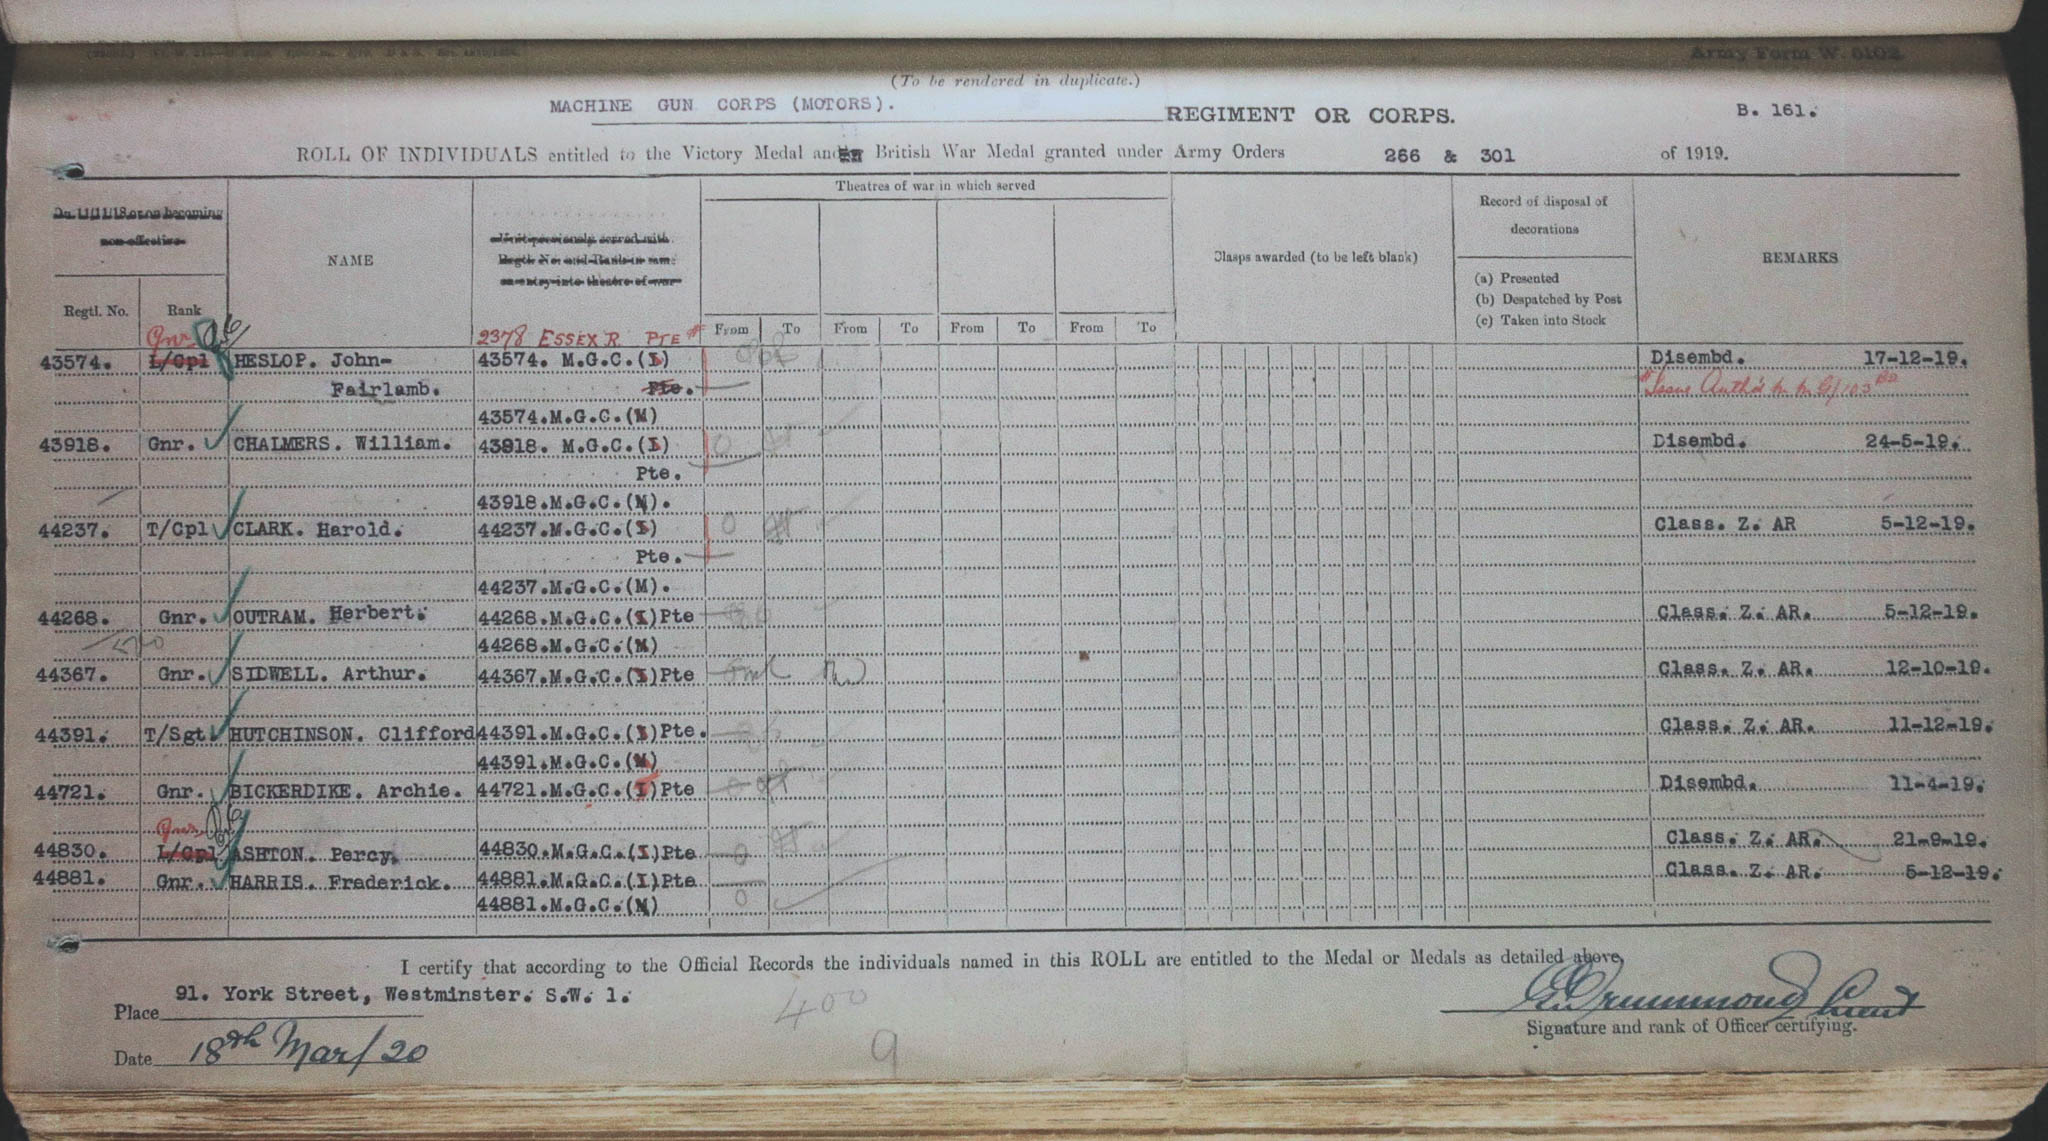 Army Form W. 5102.
(To be rendered in duplicate.)
MACHINE GUN CORPS (MOTORS). REGIMENT OR CORPS. B. 161.
ROLL OF INDIVIDUALS entitled to the Victory Medal and British War Medal granted under Army Orders 266 & 301 of 1919.
On 11/11/18 or on becoming non-effective
Regtl. No.
Rank
NAME
Unit previously served with. Regtl. No. and Rank in same on entry into theatre of war
Theatres of war in which served
From To From To From To From To
Clasps awarded (to be left blank)
Record of disposal of decorations
(a) Presented
(b) Despatched by Post
(c) Taken into Stock
REMARKS
Gnr. 2378 ESSEX R. PTE #
43574. L/Cpl HESLOP. John- 43574. M.G.C.(I) Disembd. 17-12-19.
Fairlamb. Pte. # Issue Auth'd
43574.M.G.C.(M)
43918. Gnr. CHALMERS. William. 43918. M.G.C.(I) Disembd. 24-5-19.
Pte.
43918.M.G.C.(M).
44237. T/Cpl CLARK. Harold. 44237.M.G.C.(I) Class. Z. AR 5-12-19.
Pte.
44237.M.G.C.(M).
44268. Gnr. OUTRAM. Herbert. 44268.M.G.C.(I)Pte Class. Z. AR. 5-12-19.
44268.M.G.C.(M)
44367. Gnr. SIDWELL. Arthur. 44367.M.G.C.(I)Pte Class. Z. AR. 12-10-19.
44391. T/Sgt HUTCHINSON. Clifford 44391.M.G.C.(I)Pte. Class. Z. AR. 11-12-19.
44391.M.G.C.(M)
44721. Gnr. BICKERDIKE. Archie. 44721.M.G.C.(I)Pte Disembd. 11-4-19.
Gnr.
44830. L/Cpl ASHTON. Percy. 44830.M.G.C.(I)Pte Class. Z. AR. 21-9-19.
44881. Gnr. HARRIS. Frederick. 44881.M.G.C.(I)Pte Class. Z. AR. 5-12-19.
44881.M.G.C.(M)
I certify that according to the Official Records the individuals named in this ROLL are entitled to the Medal or Medals as detailed above,
Place 91. York Street, Westminster. S.W. 1.
400
Drummond Lieut
Signature and rank of Officer certifying.
Date 18th Mar/20
9